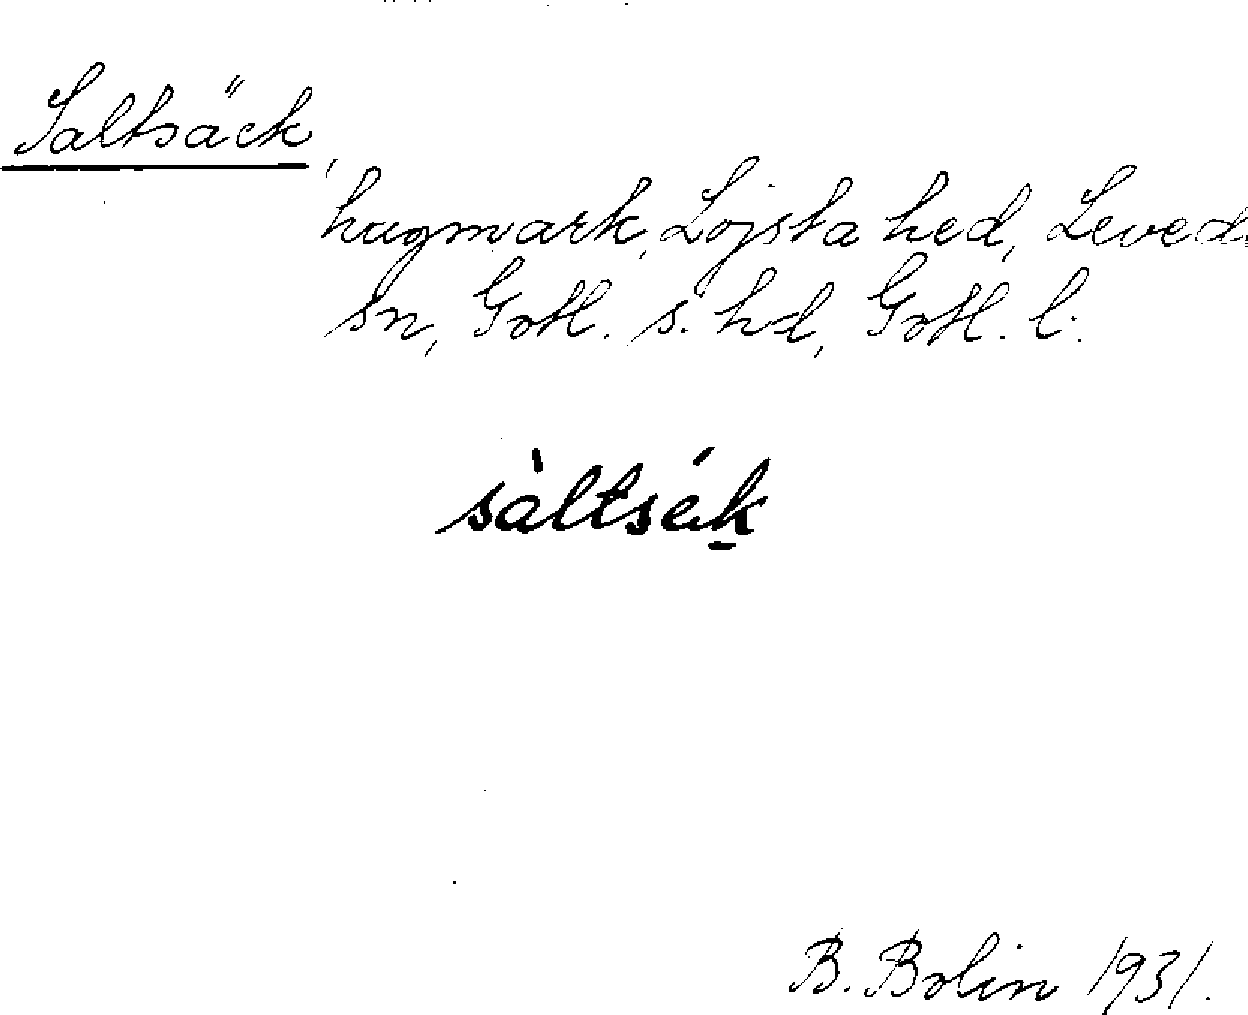 Saltsäck,
hagmark, Lojsta hed, Levede
sn, Gotl. s. hd, Gotl. l.
sàltsék
B. Bolin 1931.